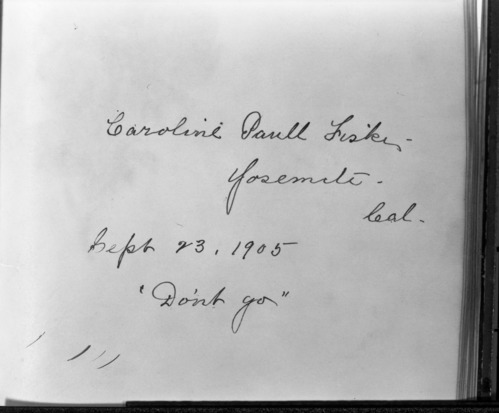 Caroline Paull Fiske -
Yosemite -
Cal -
Sept 23, 1905
"Don't go"